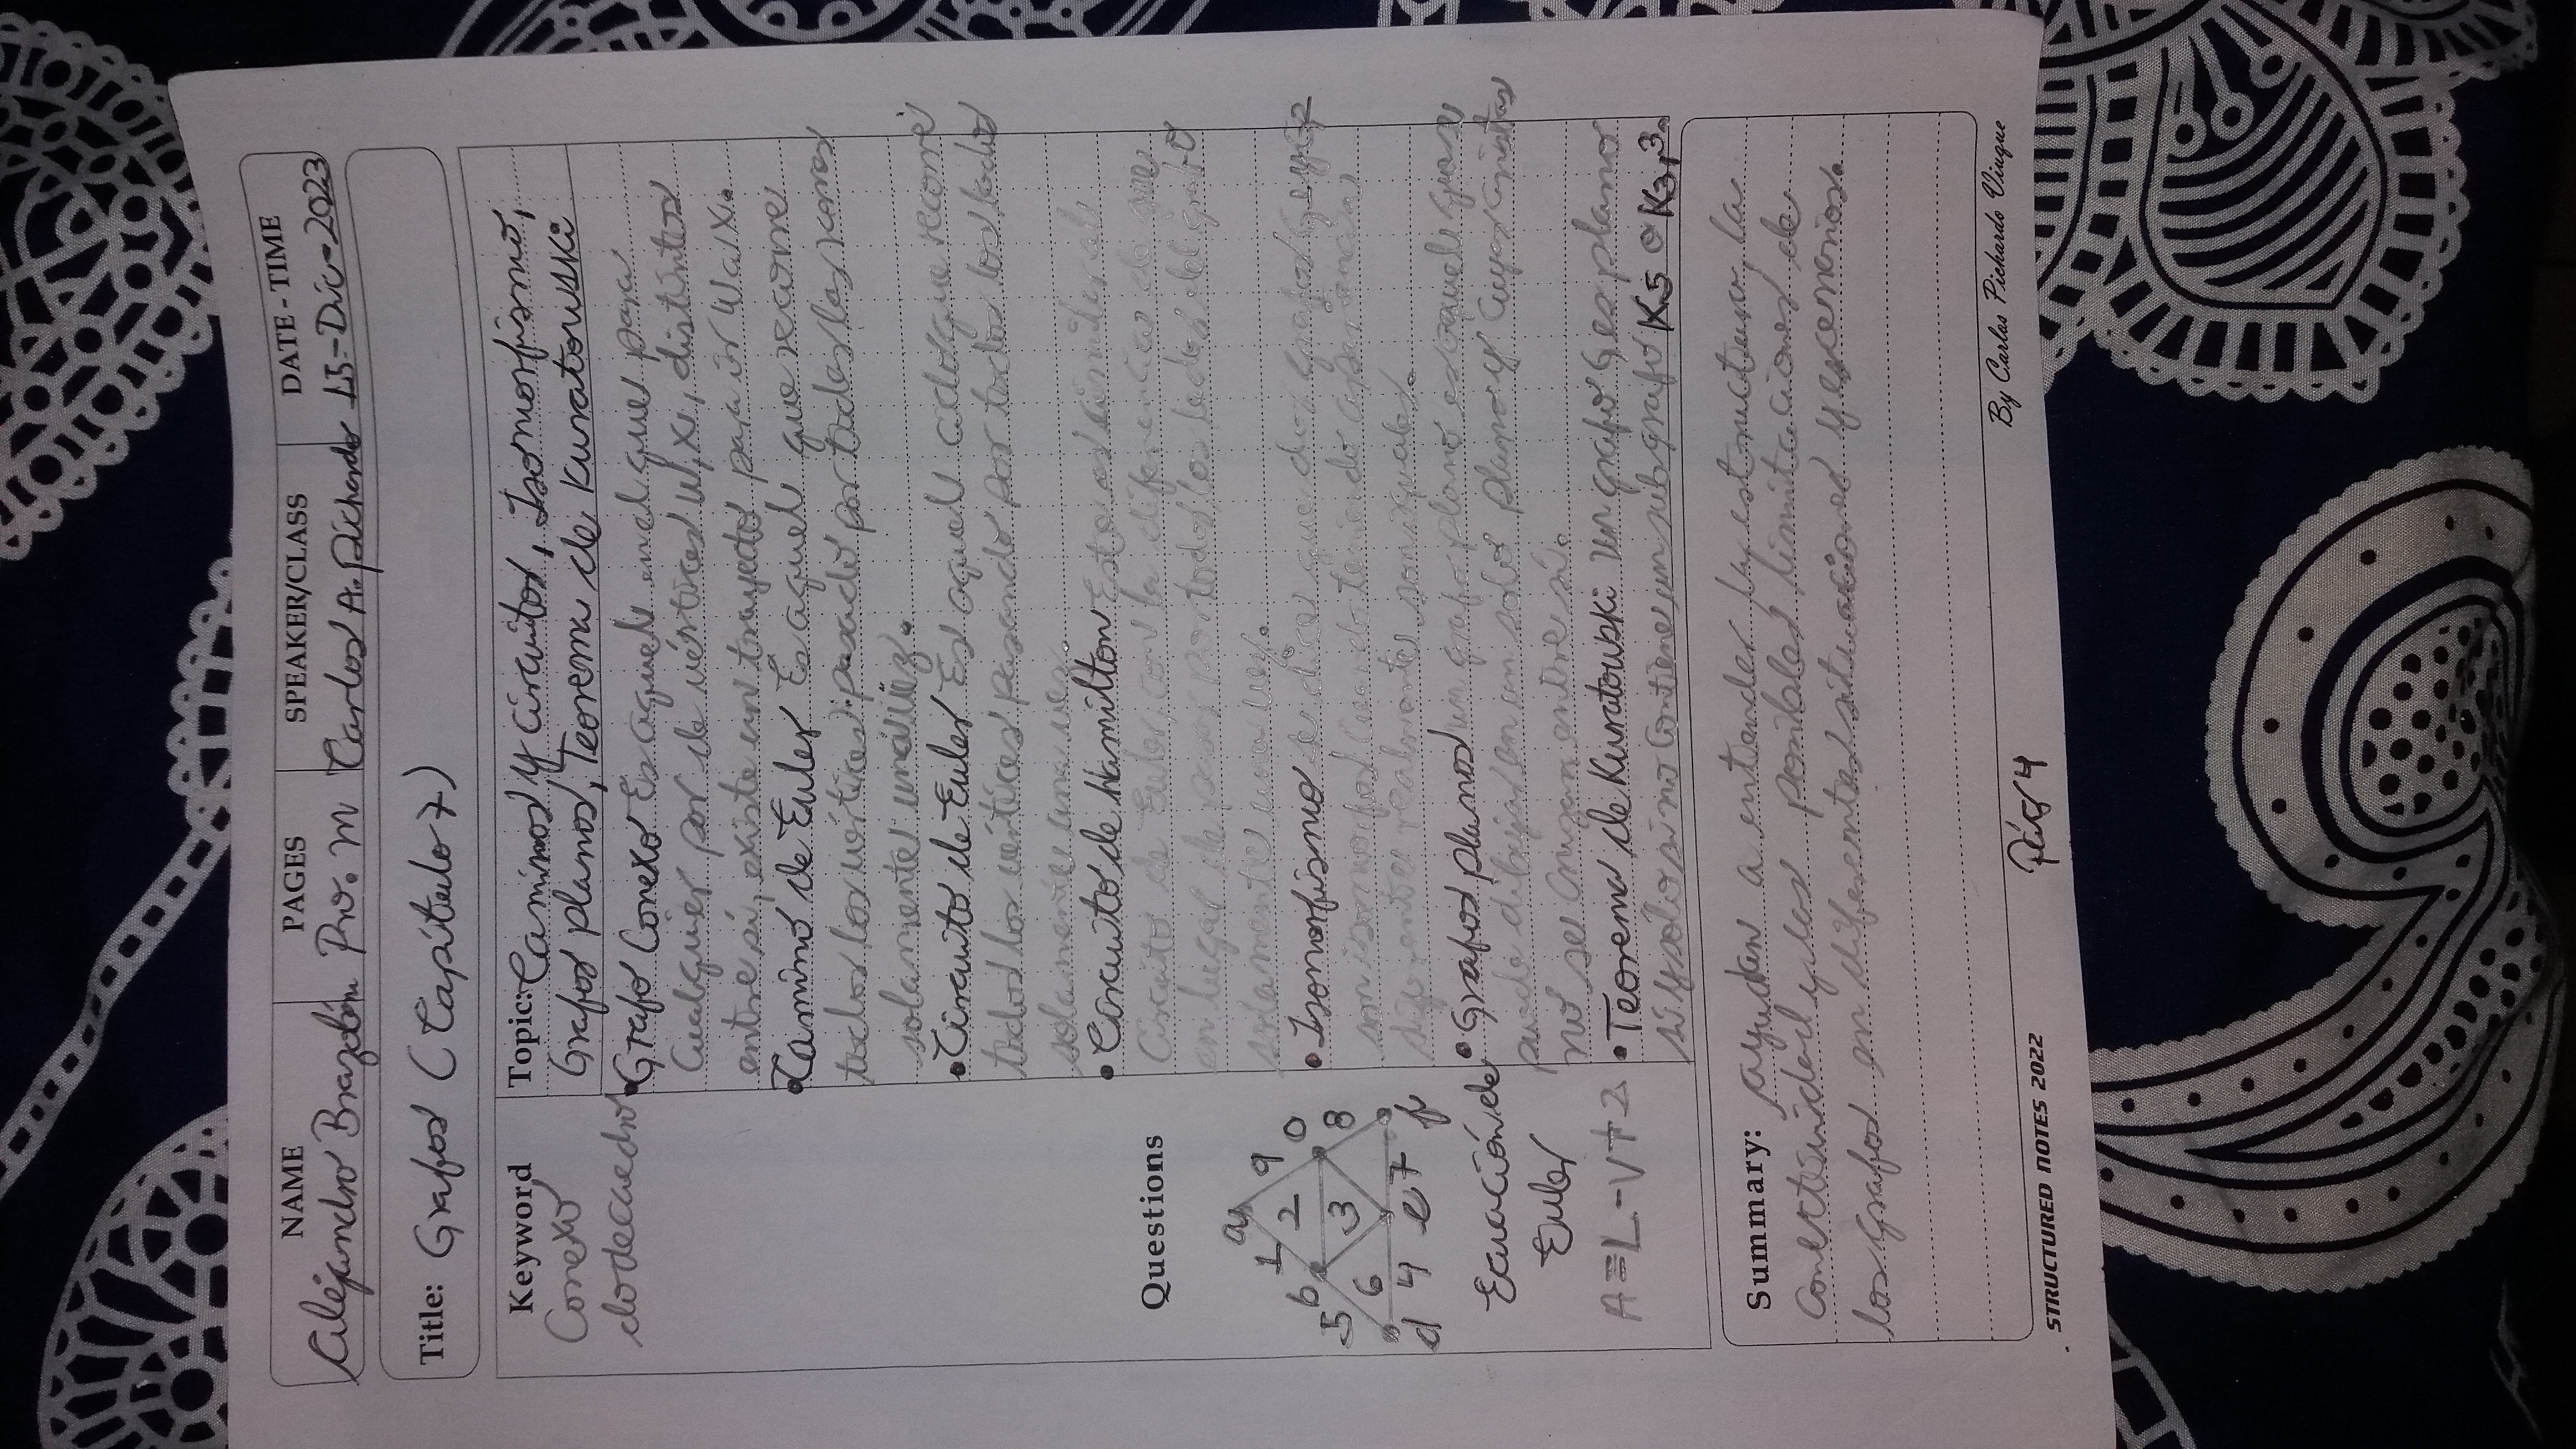 NAME PAGES SPEAKER/CLASS DATE - TIME
Alejandro Brazobán Pro. M Carlos A. Pichardo 15-Dic-2023
Title: Grafos (Capítulo 7)
Keyword
Conexo
dodecaedro
Topic: Caminos y Circuitos, Isomorfismo,
Grafos planos, Teorema de Kuratowski
•Grafo Conexo Es aquel en el que para
cualquier par de vértices w, x, distintos
entre sí, existe un trayecto para ir w a x.
•Camino de Euler Es aquel que recorre
todos los vértices pasado por todas las
solamente una vez.
•Circuito de Euler Es aquel ciclo que recorre
todos los vértices pasando por todos los lados
solamente una vez.
•Circuito de Hamilton Esto es similar al
Circuito de Euler, con la diferencia de que
en lugar de pasar por todos los lados del grafo
solamente una vez.
•Isomorfismo Se dice que dos grafos G1 y G2
son isomorfos cuando teniendo apariencia
diferente realmente son iguales.
•Grafos planos un grafo plano es aquel que se
puede dibujar en un solo plano y cuyas aristas
no se cruzan entre sí.
•Teorema de Kuratowski Un grafo G es plano
si y sólo si no contiene un subgrafo K5 o K3,3.
Questions
a
1 9
2
b 0
5 3 8
6
d 4 e 7 f
Ecuación de
Euler
A=L-V+2
Summary: ayudan a entender la estructura, la
conectividad y las posibles limitaciones de
los grafos en diferentes situaciones y escenarios.
By Carlos Pichardo Viuque
STRUCTURED NOTES 2022
Pág 4